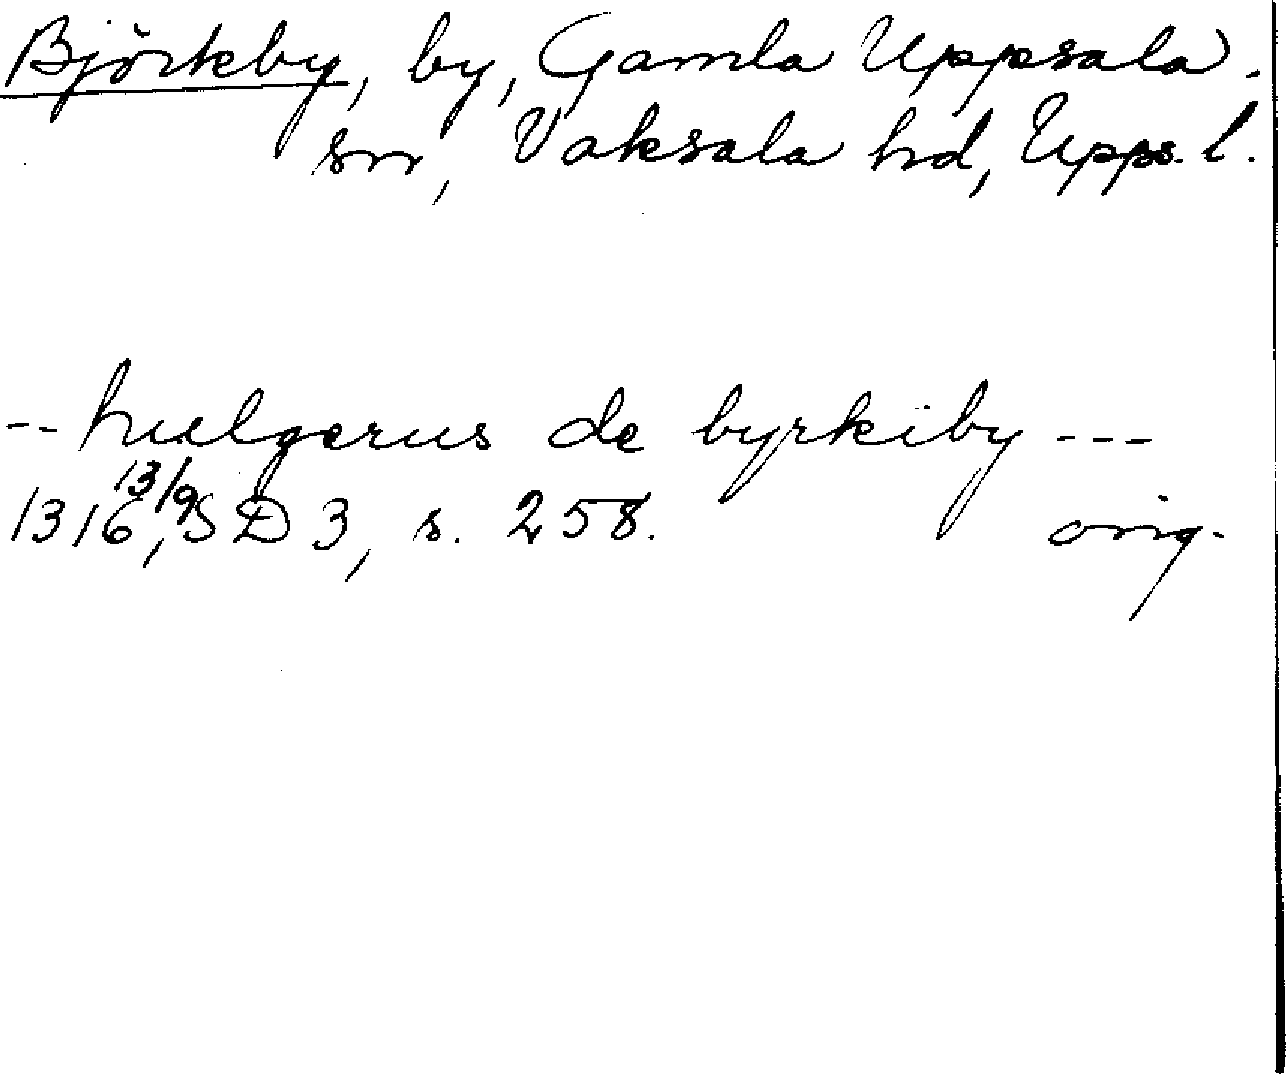 Björkeby, by, Gamla Uppsala.
sn, Vaksala hd, Upps. l.
-- hælgerus de byrkiby ---
1316 13/9, SD 3, s. 258. orig.